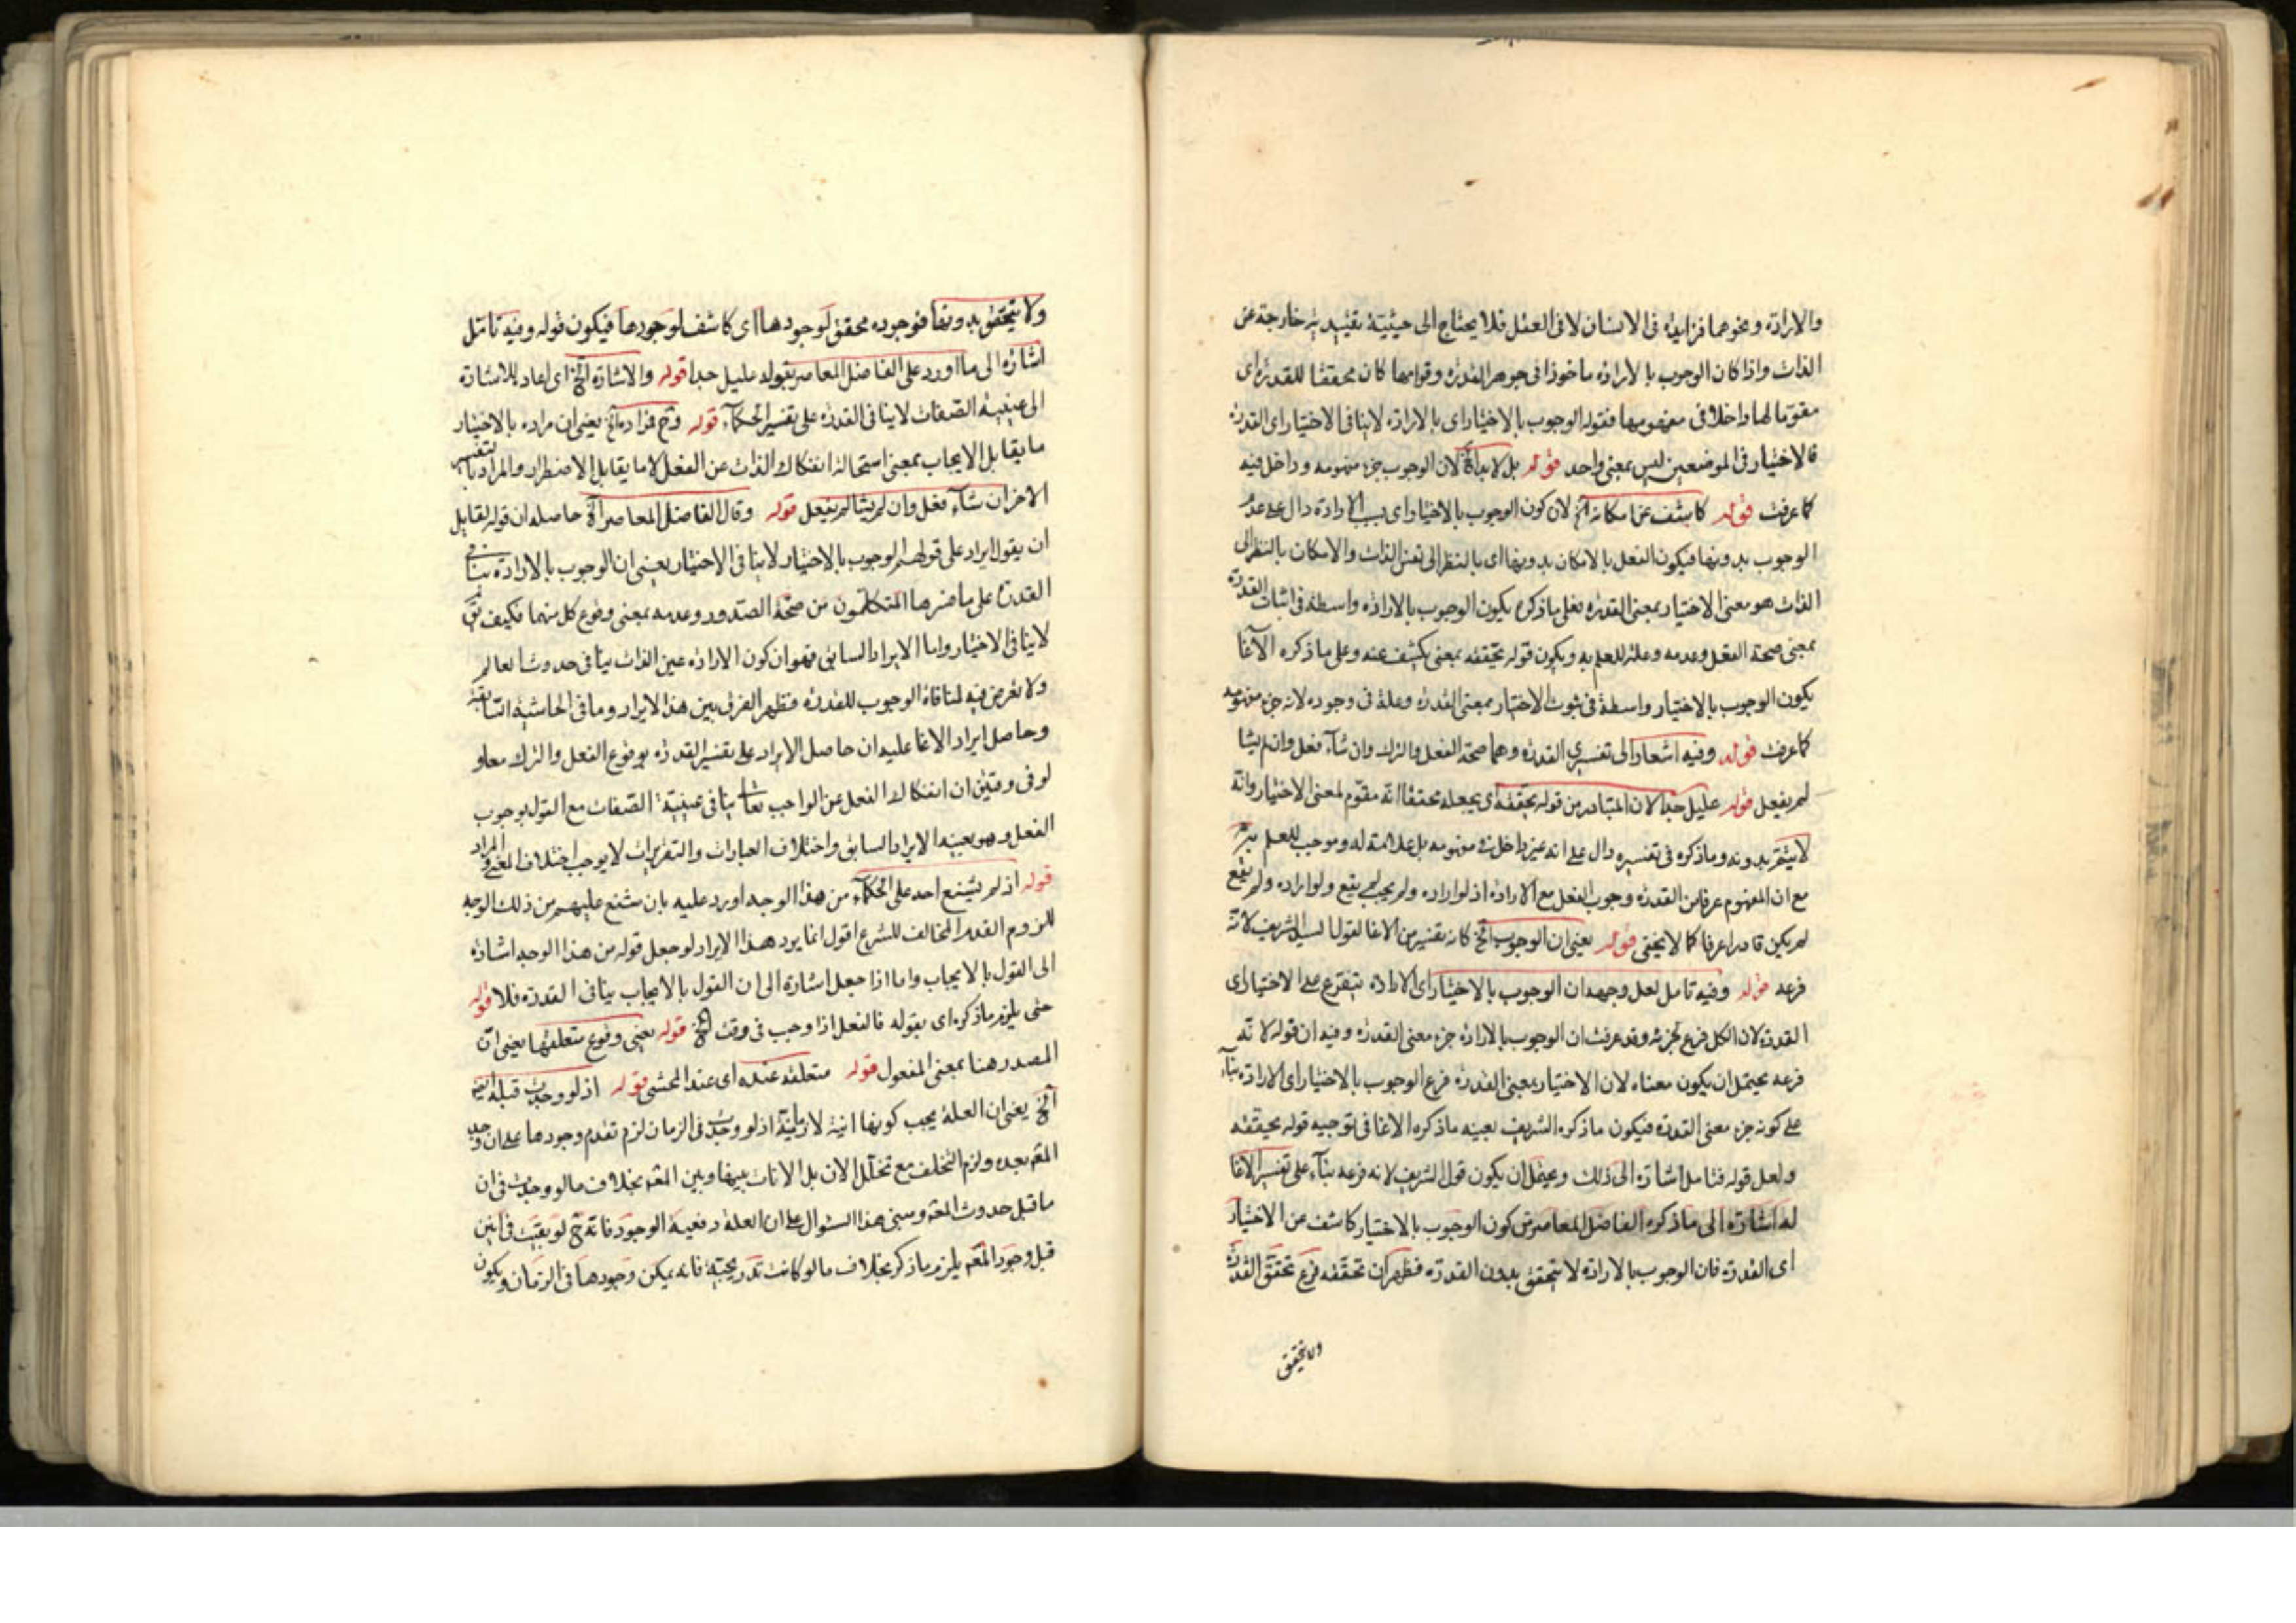 والارادة ونحوهما فزايدة فى الانسان لا فى العقل فلا يحتاج الى حيثية تقييدية خارجة عن
الذات واذا كان الوجوب بالارادة ماخوذا فى جوهر القدرة وقوامها كان محققا للقدرة اى
مقوما لها داخلا فى مفهومها فقوله الوجوب بالاختيار اى بالارادة لا ينافى الاختيار اى القدرة
فالاختيار فى الموضعين ليس بمعنى واحد قوله بل لا بد الخ لان الوجوب جزء مفهومه وداخل فيه
كما عرفت قوله كاشف عن امكانه الخ لان كون الوجوب بالاختيار اى بسبب الارادة دال على عدم
الوجوب بدونها فيكون الفعل بالامكان بدونها اى بالنظر الى نفس الذات والامكان بالنظر الى
الذات هو معنى الاختيار بمعنى القدرة فعلى ما ذكره يكون الوجوب بالارادة واسطة فى اثبات القدرة
بمعنى صحة الفعل وعدمه وعلة للعلم به ويكون قوله تحققه بمعنى يكشف عنه وعلى ما ذكره الآغا
يكون الوجوب بالاختيار واسطة فى ثبوت الاختيار بمعنى القدرة وعلة فى وجوده لانه جزء مفهومه
كما عرفت قوله وفيه اشعار الى تفسيرى القدرة وهما صحة الفعل والترك وان شآء فعل وان لم يشا
لم يفعل قوله عليل جدا لان المتبادر من قوله يحققه اى يجعله محققا انه مقوم لمعنى الاختيار وانه
لا يتقر بدونه وما ذكره فى تفسيره دال على انه غير داخل فى مفهومه بل علامة له وموجب للعلم به
مع ان المفهوم عرفا من القدرة وجوب الفعل مع الارادة اذ لو اراده ولم يجب لم يقع ولو اراده ولم يقع
لم يكن قادرا عرفا كما لا يخفى قوله يعنى ان الوجوب الخ كانه تفسير من الاغا لقول السيد الشريف لانه
فرعه قوله وفيه تامل لعل وجهه ان الوجوب بالاختيار اى الارادة يتفرع على الاختيار اى
القدرة لان الكل فرع لجزئه وقد عرفت ان الوجوب بالارادة جزء معنى القدرة وفيه ان قوله لانه
فرعه يحتمل ان يكون معناه لان الاختيار بمعنى القدرة فرع الوجوب بالاختيار اى الارادة بنآء
على كونه جزء معنى القدرة فيكون ما ذكره الشريف بعينه ما ذكره الاغا فى توجيه قوله يحققه
ولعل قوله فتامل اشارة الى ذلك ويحتمل ان يكون قول الشريف لانه فرعه بنآء على تفسير الاغا
له اشارة الى ما ذكره الفاضل المعاصر من كون الوجوب بالاختيار كاشف عن الاختيار
اى القدرة فان الوجوب بالارادة لا يتحقق بدون القدرة فظهر ان تحققه فرع تحقق القدرة
ولا يتحقق
ولا يتحقق بدونها فوجوده محقق لوجودها اى كاشف لوجودها فيكون قوله وفيه تامل
اشارة الى ما اورد على الفاضل المعاصر بقوله عليل جدا قوله والاشارة الخ اى اعاد للاشارة
الى عينية الصفات لا ينافى القدرة على تفسير الحكمآء قوله وح فمراده الخ يعنى ان مراده بالاختيار
ما يقابل الايجاب بمعنى استحالة انفكاك الذات عن الفعل لا ما يقابل الاضطرار والمراد بالتفسير
الاخر ان شآء فعل وان لم يشا لم يفعل قوله وقال الفاضل المعاصر الخ حاصله ان قوله لقايل
ان يقول ايراد على قولهم الوجوب بالاختيار لا ينافى الاختيار يعنى ان الوجوب بالارادة ينافى
القدرة على ما فسرها المتكلمون من صحة الصدور وعدمه بمعنى وقوع كل منهما فكيف يق
لا ينافى الاختيار واما الايراد السابق فهو ان كون الارادة عين الذات ينافى حدوث العالم
ولا تعرض فيه لمنافاة الوجوب للقدرة فظهر الفرق بين هذا الايراد وما فى الحاشية السابقة
وحاصل ايراد الاغا عليه ان حاصل الايراد على تفسير القدرة بوقوع الفعل والترك معا و
لو فى وقتين ان انفكاك الفعل عن الواجب تعالى ينافى عينية الصفات مع القول بوجوب
الفعل وهو بعينه الايراد السابق واختلاف العبارات والتقريرات لا يوجب اختلاف المعنى والمراد
قوله اذ لم يشنع احد على الحكمآء من هذا الوجه اورد عليه بان شنع عليهم من ذلك الوجه
للزوم القدم المخالف للشرع اقول انما يرد هذا الايراد لو جعل قوله من هذا الوجه اشارة
الى القول بالايجاب واما اذا جعل اشارة الى ان القول بالايجاب ينافى القدرة فلا قوله
حتى يلزم ما ذكره اى بقوله فالفعل اذا وجب فى وقت الخ قوله يعنى وقوع متعلقها يعنى ان
المصدر هنا بمعنى المفعول قوله متعلقه عنده اى عند المحشى قوله اذ لو وجدت قبله
الخ يعنى ان العلة يجب كونها انية لا زمانية اذ لو وجدت فى الزمان لزم تقدم وجودها على ان وجد
المعم بعده ولزم التخلف مع تخلل الان بل الانات بينها وبين المعم بخلاف ما لو وجدت فى ان
ما قبل حدوث المعم ومبنى هذا السئوال على ان العلة دفعية الوجود فانه ح لو بقيت فى انين
قبل وجود المعم يلزم ما ذكر بخلاف ما لو كانت تدريجية فانه يمكن وجودها فى الزمان ويكون